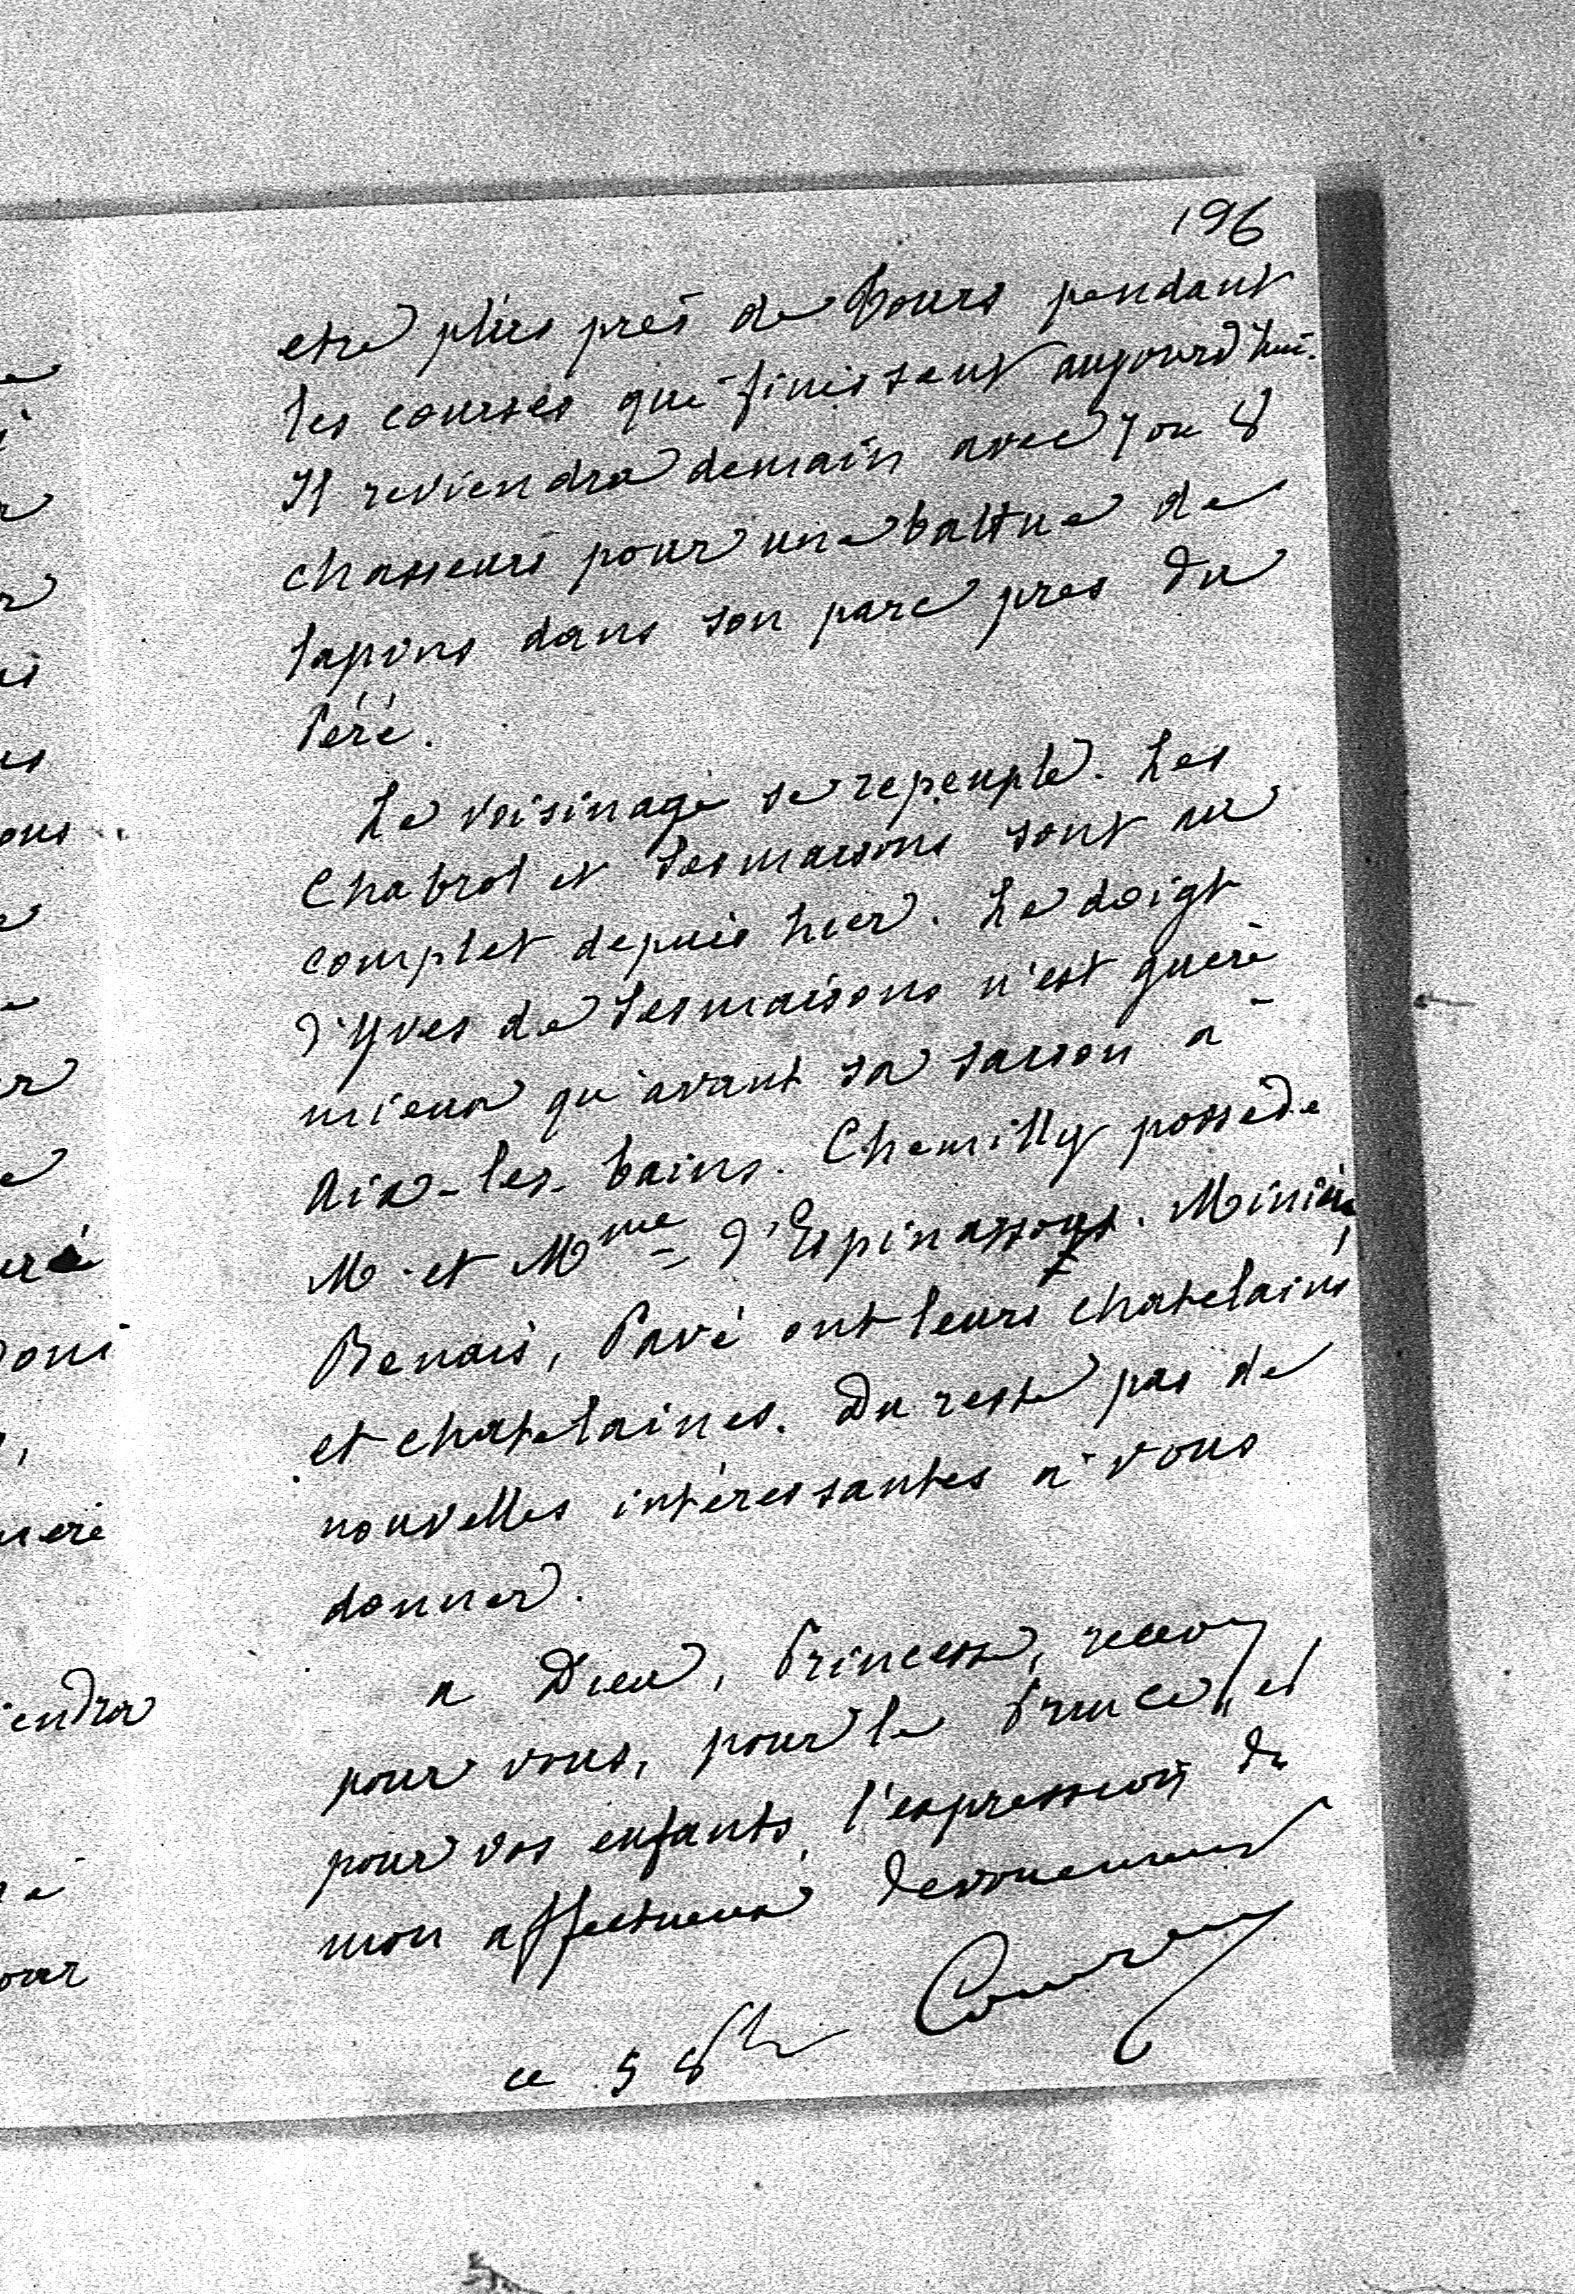 196
etre plus près de Tours pendant
les courses qui finissent aujourd'hui.
Il reviendra demain avec 7 ou 8
chasseurs pour une battue de
lapins dans son parc près du
Péré.
Le voisinage se repeuple. Les
Chabrol et Lesmaisons sont au
complet depuis hier. Le doigt
d'Yves de Lesmaisons n'est guère
mieux qu'avant sa saison à
Aix-les-bains. Chemilly possède
M. et Mme d'Espinassous. Minière
Benais, Pavé ont leurs chatelains
et chatelaines. Du reste pas de
nouvelles intéressantes à vous
donner.
à Dieu, Princesse, recevez
pour vous, pour le Prince, et
pour vos enfants, l'expression de
mon affectueux dévouement
ce 5 8bre